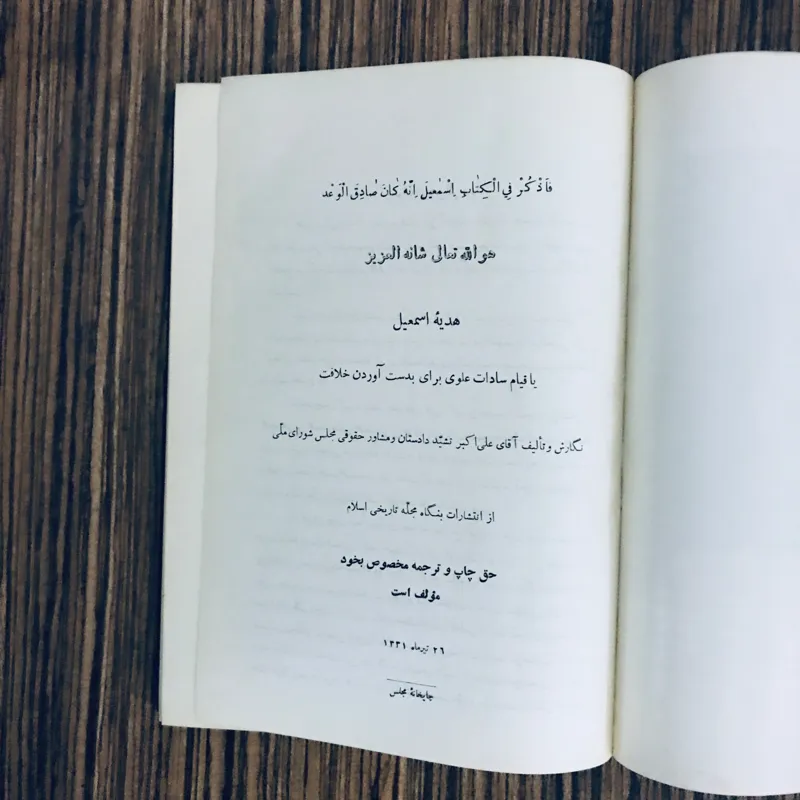 فَاذْكُرْ فِي الْكِتٰابِ اِسْمٰعيلَ اِنَّهُ كٰانَ صٰادِقَ الْوَعْد
هو الله تعالی شانه العزیز
هدیۀ اسمعیل
یا قیام سادات علوی برای بدست آوردن خلافت
نگارش و تألیف آقای علی‌اکبر تشیّد دادستان و مشاور حقوقی مجلس شورای ملّی
از انتشارات بنگاه مجلّه تاریخی اسلام
حق چاپ و ترجمه مخصوص بخود
مؤلف است
۲۶ تیرماه ۱۳۳۱
چاپخانۀ مجلس